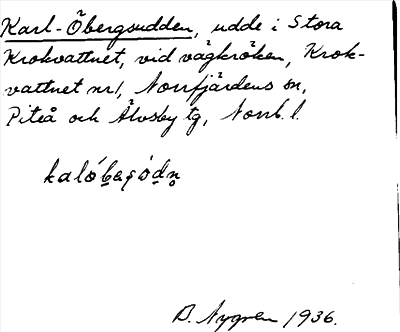 Karl-Öbergsudden, udde i Stora
Krokvattnet, vid vägkröken, Krok-
vattnet nr 1, Norrfjärdens sn,
Piteå och Älvsby tg, Norrb. l.
B. Nygren 1936.